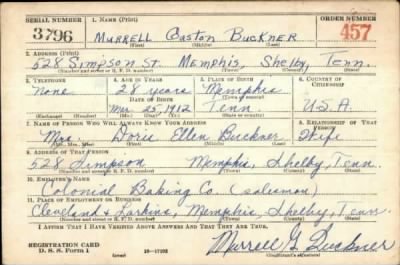 SERIAL NUMBER 1. NAME (Print) ORDER NUMBER
3796 MURRELL Gaston Buckner 457
(First) (Middle) (Last)
2. ADDRESS (Print)
528 Simpson St. Memphis, Shelby, Tenn.
(Number and street or R. F. D. number) (Town) (County) (State)
3. TELEPHONE 4. AGE IN YEARS 5. PLACE OF BIRTH 6. COUNTRY OF CITIZENSHIP
None 28 years Memphis
DATE OF BIRTH (Town or county)
Mar. 25, 1912 Tenn. U.S.A.
(Exchange) (Number) (Mo.) (Day) (Yr.) (State or country)
7. NAME OF PERSON WHO WILL ALWAYS KNOW YOUR ADDRESS 8. RELATIONSHIP OF THAT PERSON
Mrs. Doris Ellen Buckner Wife
(Mr., Mrs., Miss) (First) (Middle) (Last)
9. ADDRESS OF THAT PERSON
528 Simpson Memphis, Shelby, Tenn.
(Number and street or R. F. D. number) (Town) (County) (State)
10. EMPLOYER'S NAME
Colonial Baking Co. (salesman)
11. PLACE OF EMPLOYMENT OR BUSINESS
Cleveland & Larkins, Memphis, Shelby, Tenn.
(Number and street or R. F. D. number) (Town) (County) (State)
I AFFIRM THAT I HAVE VERIFIED ABOVE ANSWERS AND THAT THEY ARE TRUE.
REGISTRATION CARD
D. S. S. Form 1 (over) 16-17105
Murrell G. Buckner
(Registrant's signature)